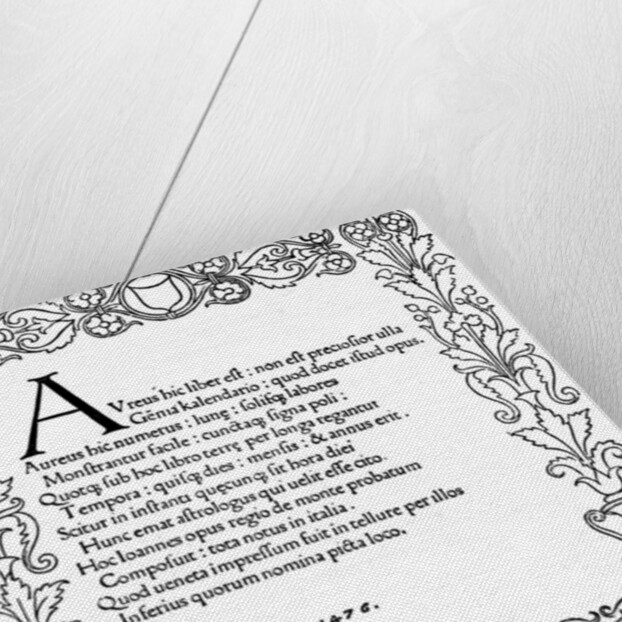 AVreus hic liber est : non est preciosior ulla
Gẽna kalendario : quod docet istud opus.
Aureus hic numerus : lunę : solisq; labores
Monstrantur facile : cunctaq; signa poli :
Quotq; sub hoc libro terrę per longa regantur
Tempora : quisq; dies : mensis : & annus erit .
Scitur in instanti quęcunq; sit hora diei
Hunc emat astrologus qui uelit esse cito.
Hoc Ioannes opus regio de monte probatum
Composuit : tota notus in italia .
Quod ueneta impressum fuit in tellure per illos
Inferius quorum nomina picta loco.
1476.